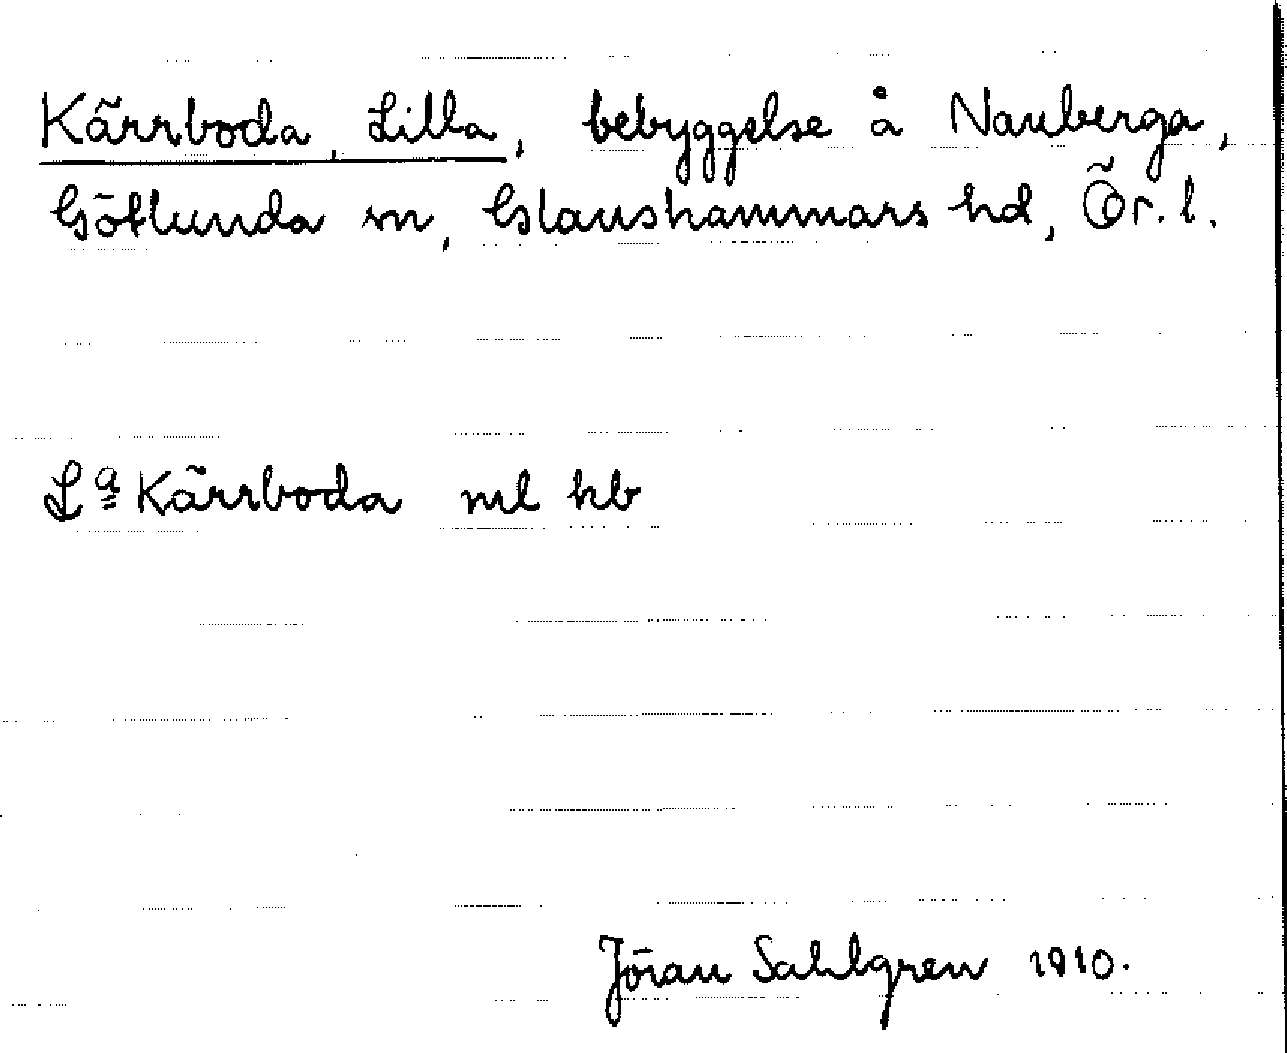 Kärrboda, Lilla, bebyggelse å Nauberga,
Götlunda sn, Glanshammars hd, Ör. l.
L:a Kärrboda ml hb
Jöran Sahlgren 1910.